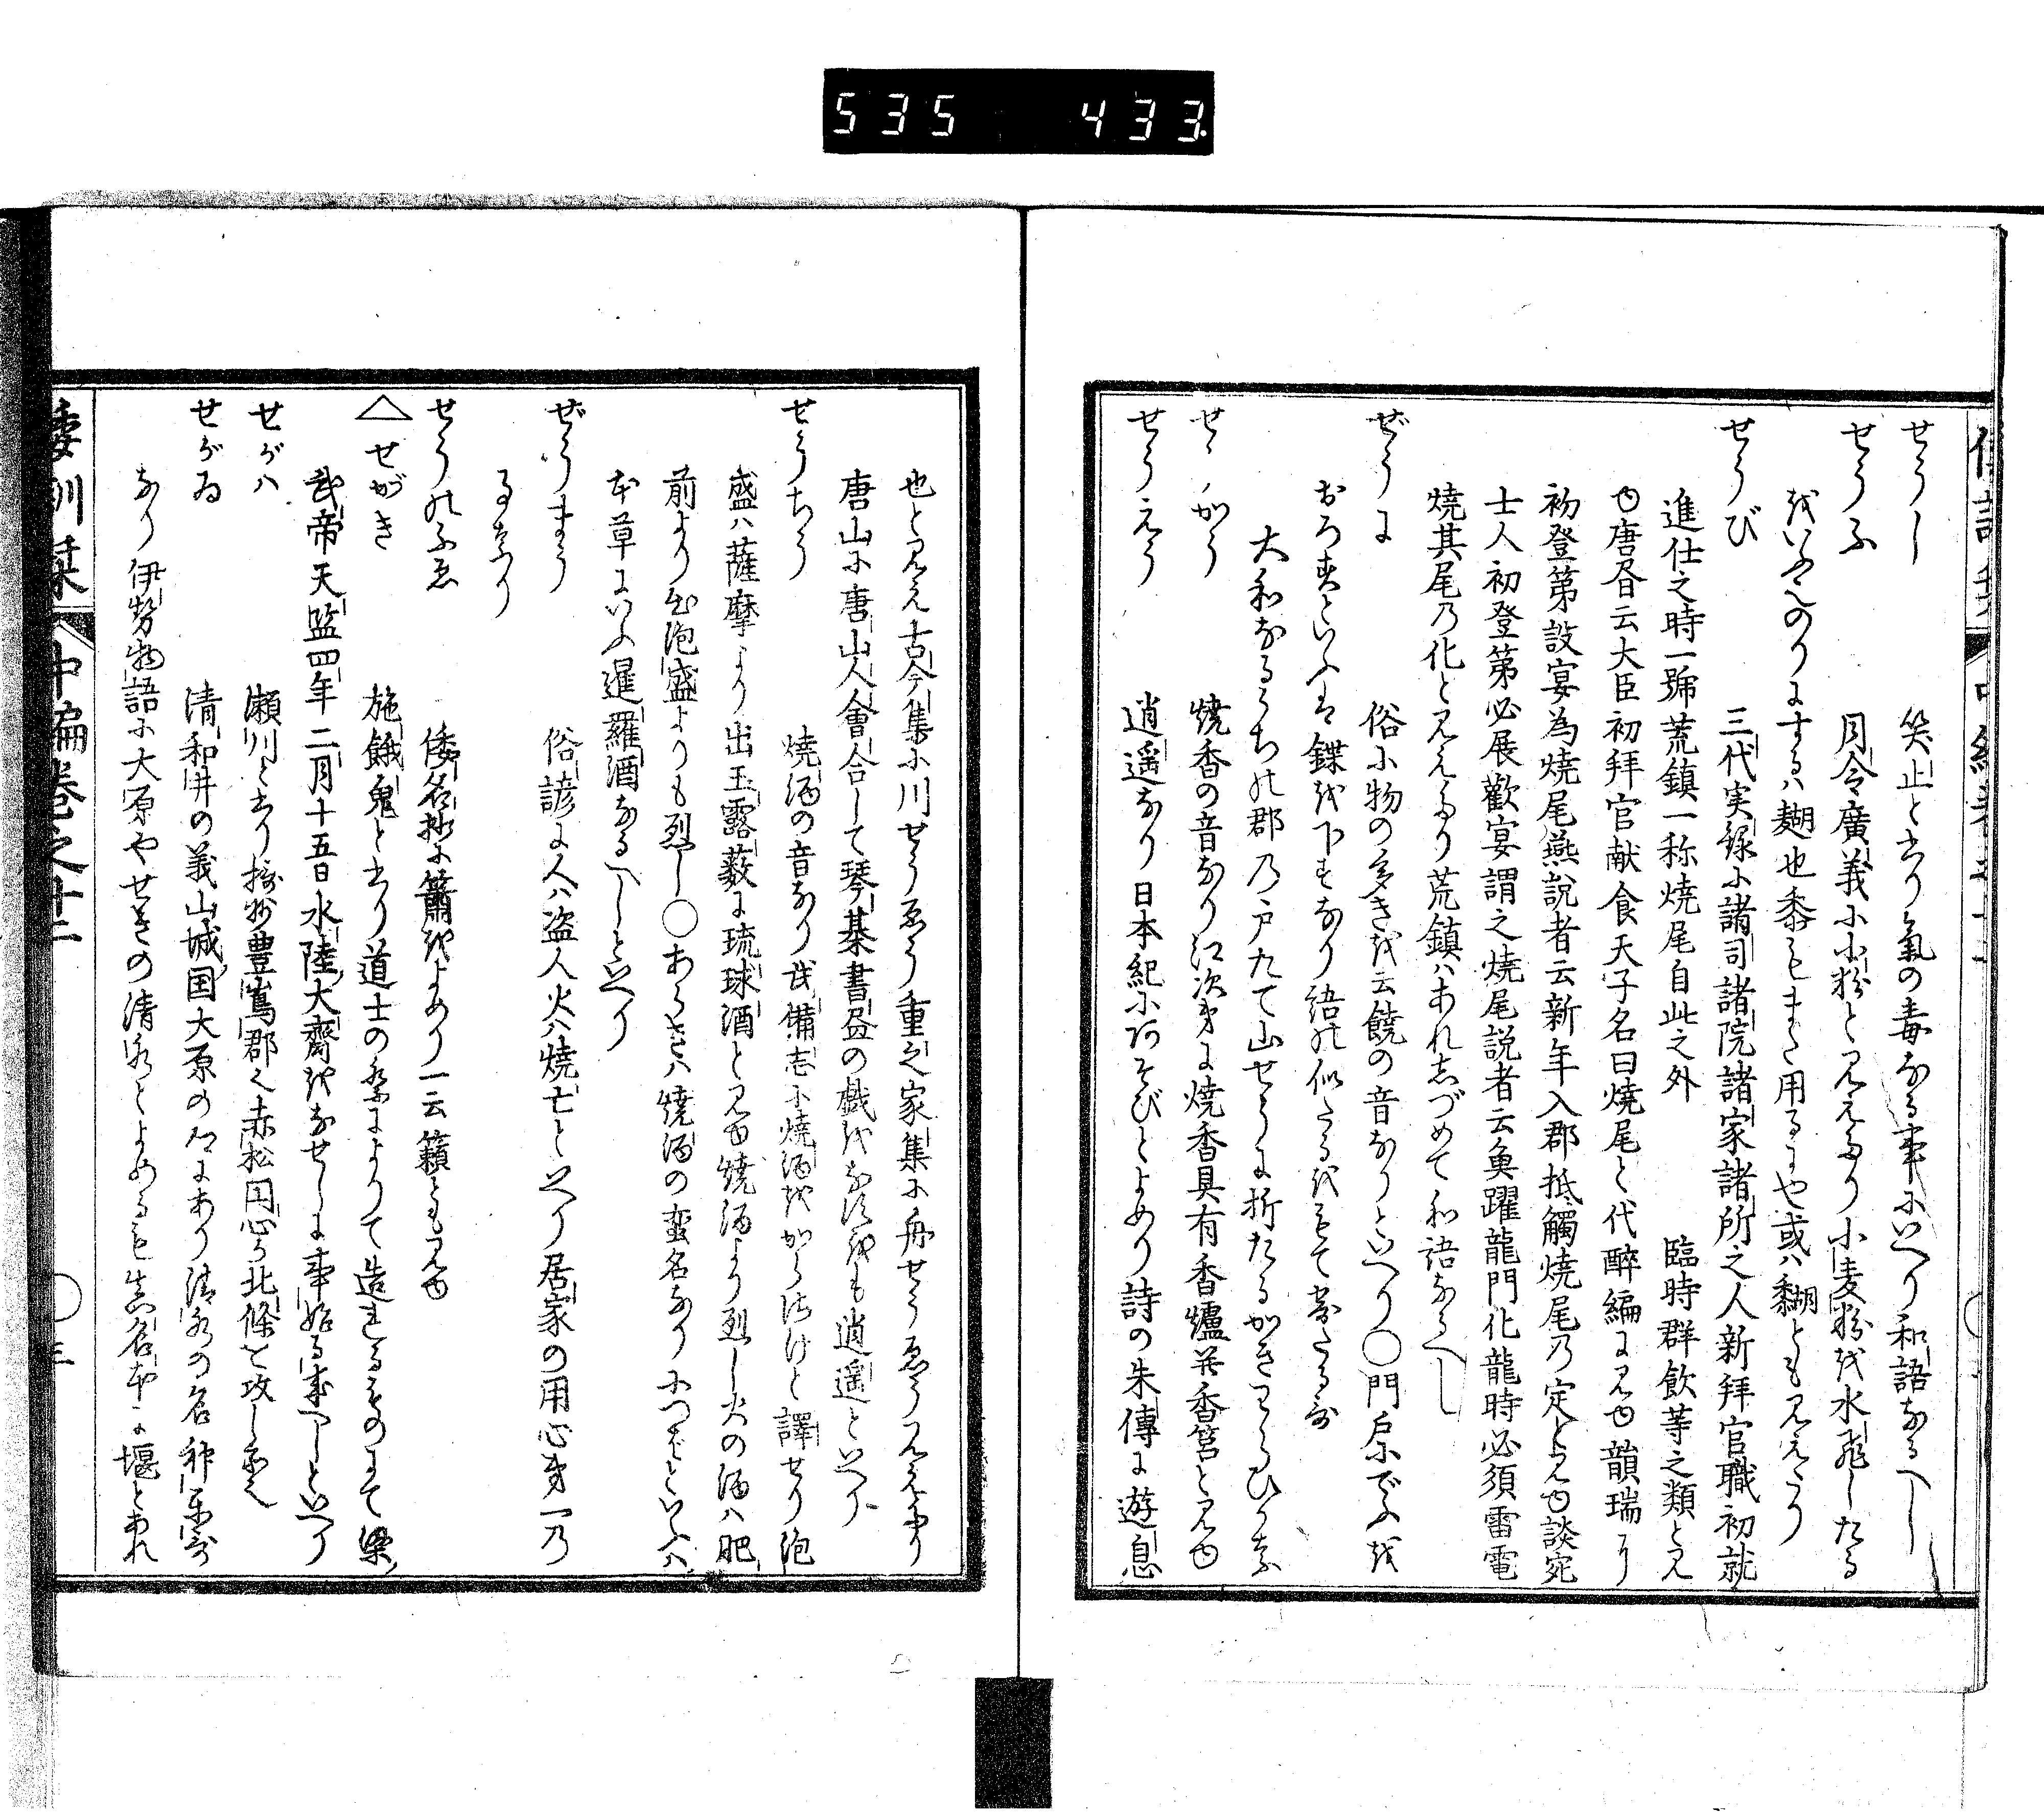 535 433.
せうし 笑止と書り氣の毒なる事にいへり和語なるへし
せうふ 月令廣義に小粉と見えたり小麦粉を水飛したる
をいふのりにするハ麹也黍もまた用るにや或ハ糊とも見えたり
せうび 三代実録に諸司諸院諸家諸所之人新拜官職初就
進仕之時一號荒鎮一称焼尾自此之外 臨時群飲等之類と見
ゆ唐書云大臣初拜官献食天子名曰焼尾と代醉編に見ゆ韻瑞に
初登第設宴為焼尾燕説者云新年入郡抵觸焼尾乃定と見ゆ談宛
士人初登第必展歡宴謂之焼尾説者云魚躍龍門化龍時必須雷電
焼其尾乃化と見えたり荒鎮ハあれしづめて和語なるへし
ぜうに 俗に物の多きを云饒の音なりといへり〇門戸にぜふを
おろすといふは鏁を下すなり 語の似たるをもて
大和なるうちの郡乃戸たて山せうに折たるかきわらひ
せヽかう 焼香の音なり江次第に焼香具有香爐并香筥と見ゆ
せうえう 逍遥なり日本紀にあそびとよめり詩の朱傳に遊息
也と見え古今集に川せうゑう重之家集に舟せうゑう見えたり
唐山に唐山人會合して琴棊書画の戯をなすをも逍遥といへり
せうちう 焼酒の音なり武備志に焼酒をからさけと譯せり泡
盛ハ薩摩より出玉露藪に琉球酒と見ゆ焼酒より烈し火の酒ハ肥
前より出泡盛よりも烈し〇あらきハ焼酒の蛮名なり といふハ
本草にいふ暹羅酒なるへしといへり
ぜうまう 俗諺に人ハ盗人火ハ焼亡といへり居家の用心第一乃
るなり
せうのふゑ 倭名抄に簫をよめり一云籟とも見ゆ
△せがき 施餓鬼と書り道士の祭によりて造れるものにて梁
武帝天監四年二月十五日水陸大齋をなせしに事始る成へしといへり
せがハ 瀬川と書り摂州豊嶌郡也赤松円心か北條と攻し所也
せがゐ 清和井の義山城国大原の にあり清水の名神楽哥
なり伊勢物語に大原やせきの清水とよめるも真名本に堰とあれ
倭訓栞 中編巻之十二 〇三